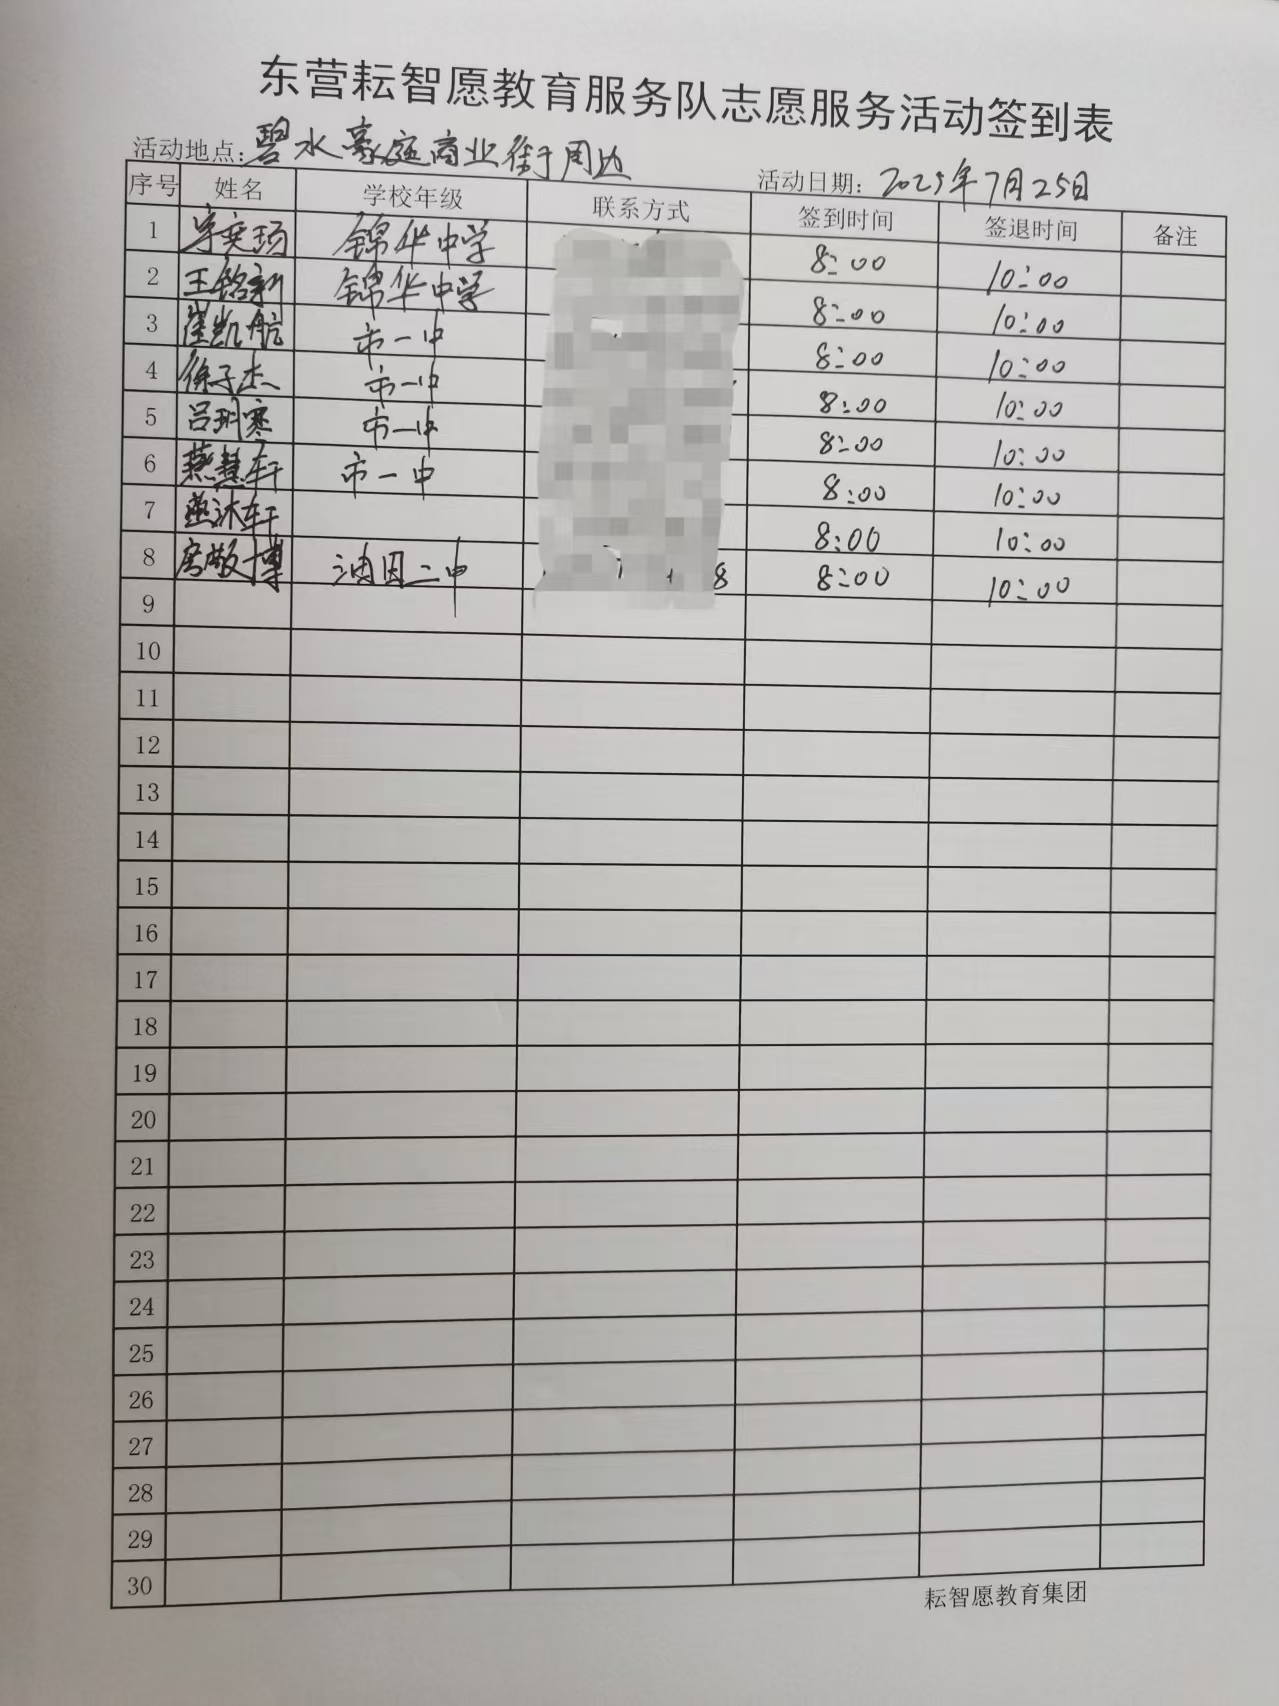 东营耘智愿教育服务队志愿服务活动签到表
活动地点：碧水豪庭商业街周边 活动日期：2025年7月25日
序号 姓名 学校年级 联系方式 签到时间 签退时间 备注
1 锦华中学 8:00 10:00
2 王铭新 锦华中学 8:00 10:00
3 崔凯航 市一中 8:00 10:00
4 徐子杰 市一中 8:00 10:00
5 吕玥寒 市一中 8:00 10:00
6 燕慧轩 市一中 8:00 10:00
7 燕沐轩 8:00 10:00
8 博 油田二中 8 8:00 10:00
9
10
11
12
13
14
15
16
17
18
19
20
21
22
23
24
25
26
27
28
29
30
耘智愿教育集团